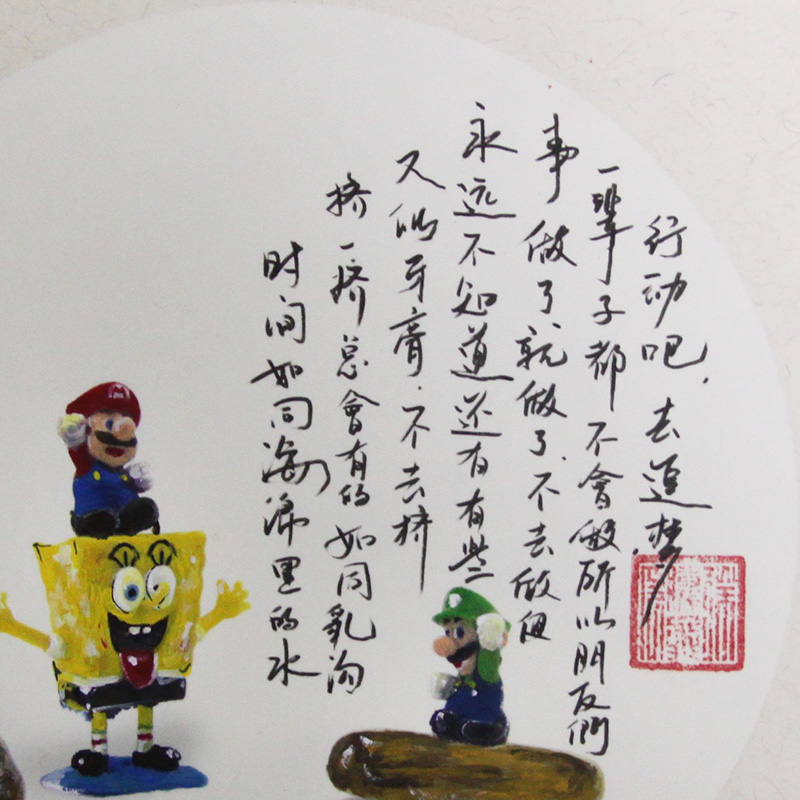 时间如同海绵里的水
挤一挤总會有的如同乳沟
又似牙膏.不去挤
永远不知道还有有些
事做了就做了.不去做但
一辈子都不會做所以朋友們
行动吧,去追梦